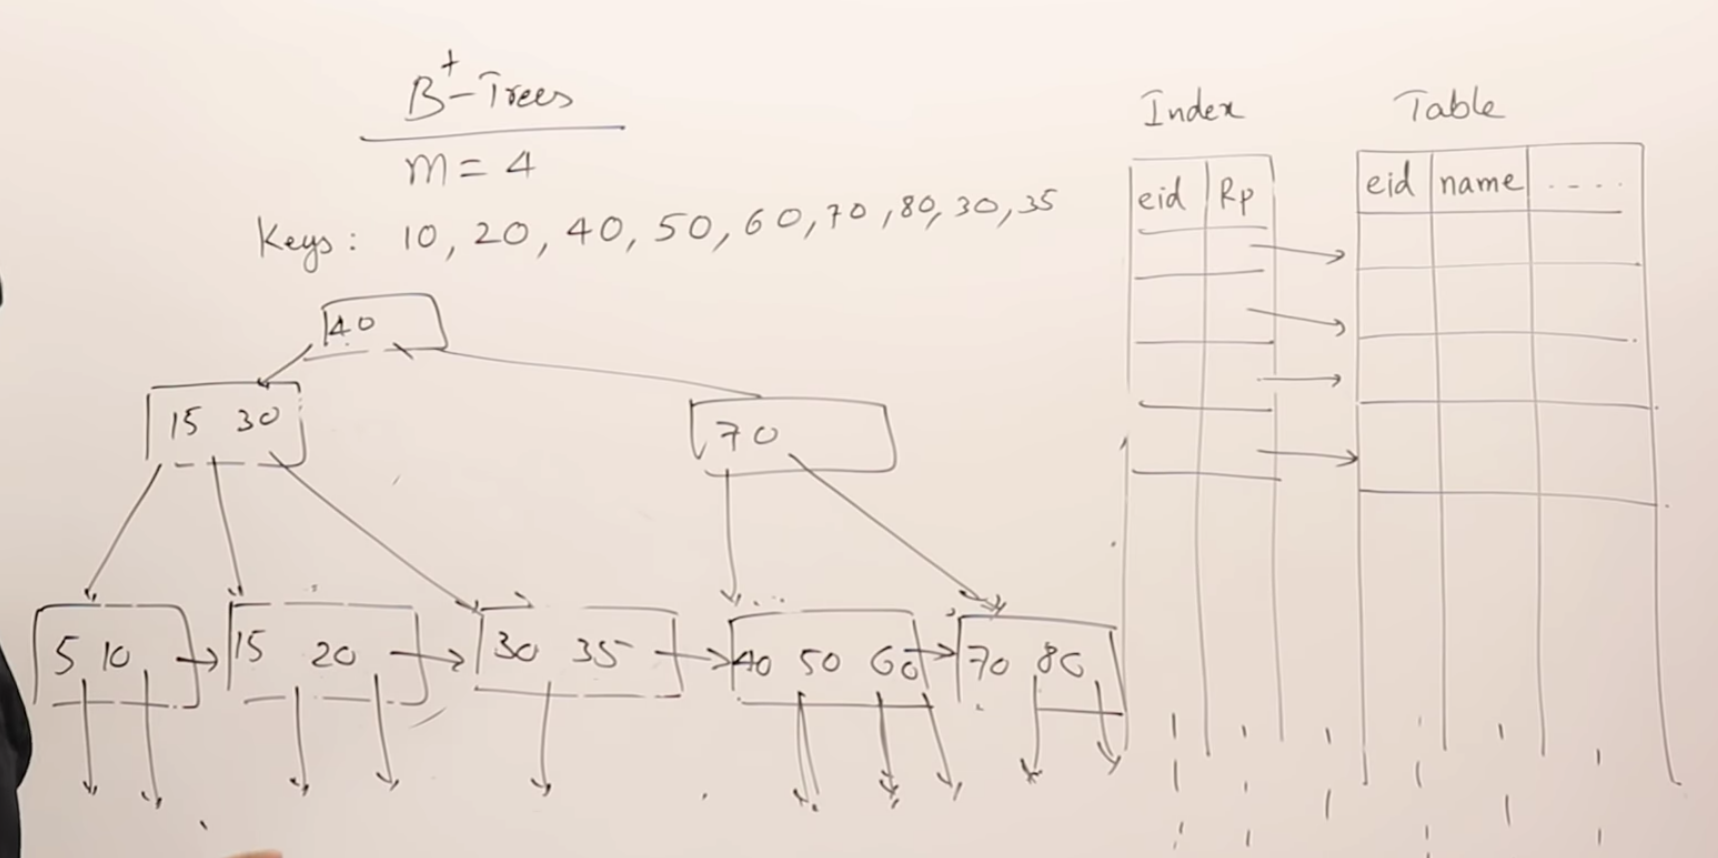 B+-Trees
m = 4
Keys: 10, 20, 40, 50, 60, 70, 80, 30, 35
40
15 30
70
5 10
15 20
30 35
40 50 60
70 80
Index
eid Rp
Table
eid name ....